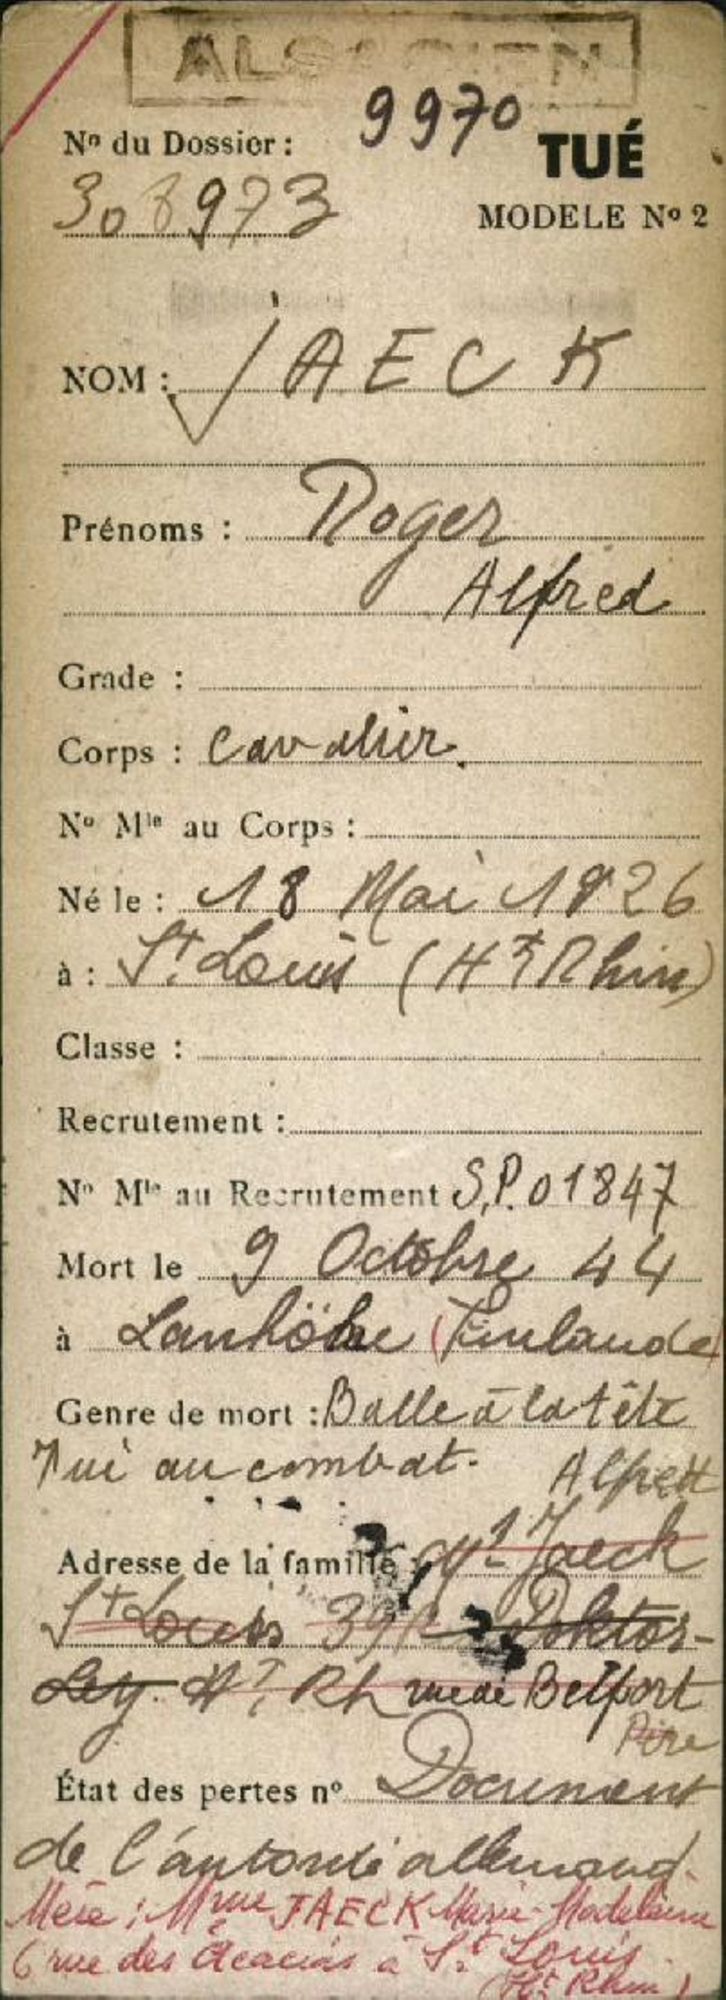 ALSACIEN
9970
Nº du Dossier :
TUÉ
308973
MODELE Nº 2
NOM : JAECK
Prénoms : Roger
Alfred
Grade :
Corps : Cavalier.
Nº Mle au Corps :
Né le : 18 Mai 1926
à : St. Louis (Ht Rhin)
Classe :
Recrutement :
Nº Mle au Recrutement S.P. 01847
Mort le 9 Octobre 44
à Lanhöhe (Finlande)
Genre de mort : Balle à la tête
Tué au combat.
Adresse de la famille : Mr Jaeck
St Louis 39 Doktor-
Ley. Ht. Rh rue de Belfort
Père
État des pertes nº Document
de l'autorité allemand.
Mère : Mme JAECK Marie-Madeleine
6 rue des Acacias à St. Louis
(Ht Rhin)